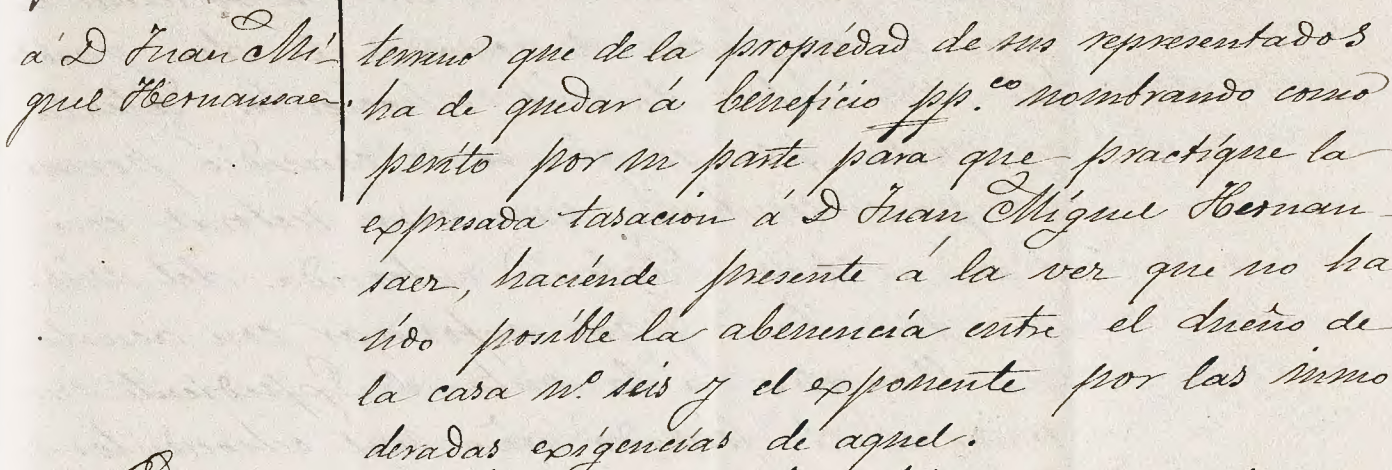 á D Juan Mi-
guel Hernansaez.
terreno que de la propiedad de sus representados
ha de quedar á beneficio pp.co nombrando como
perito por su parte para que practique la
expresada tasacion á D Juan Miguel Hernan-
saez, haciende presente á la vez que no ha
sido posible la abenencia entre el dueño de
la casa nº. seis y el exponente por las inmo
deradas exigencias de aquel.